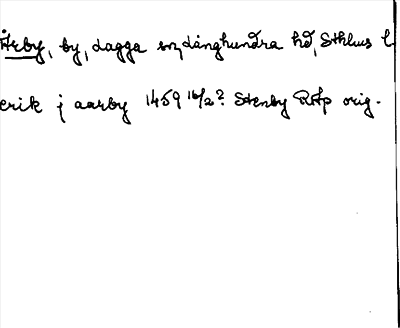 Åreby, by, Lagga sn, Långhundra hd, Sthlms l
erik j aarby 1459 16/2? Stenby RAp orig.